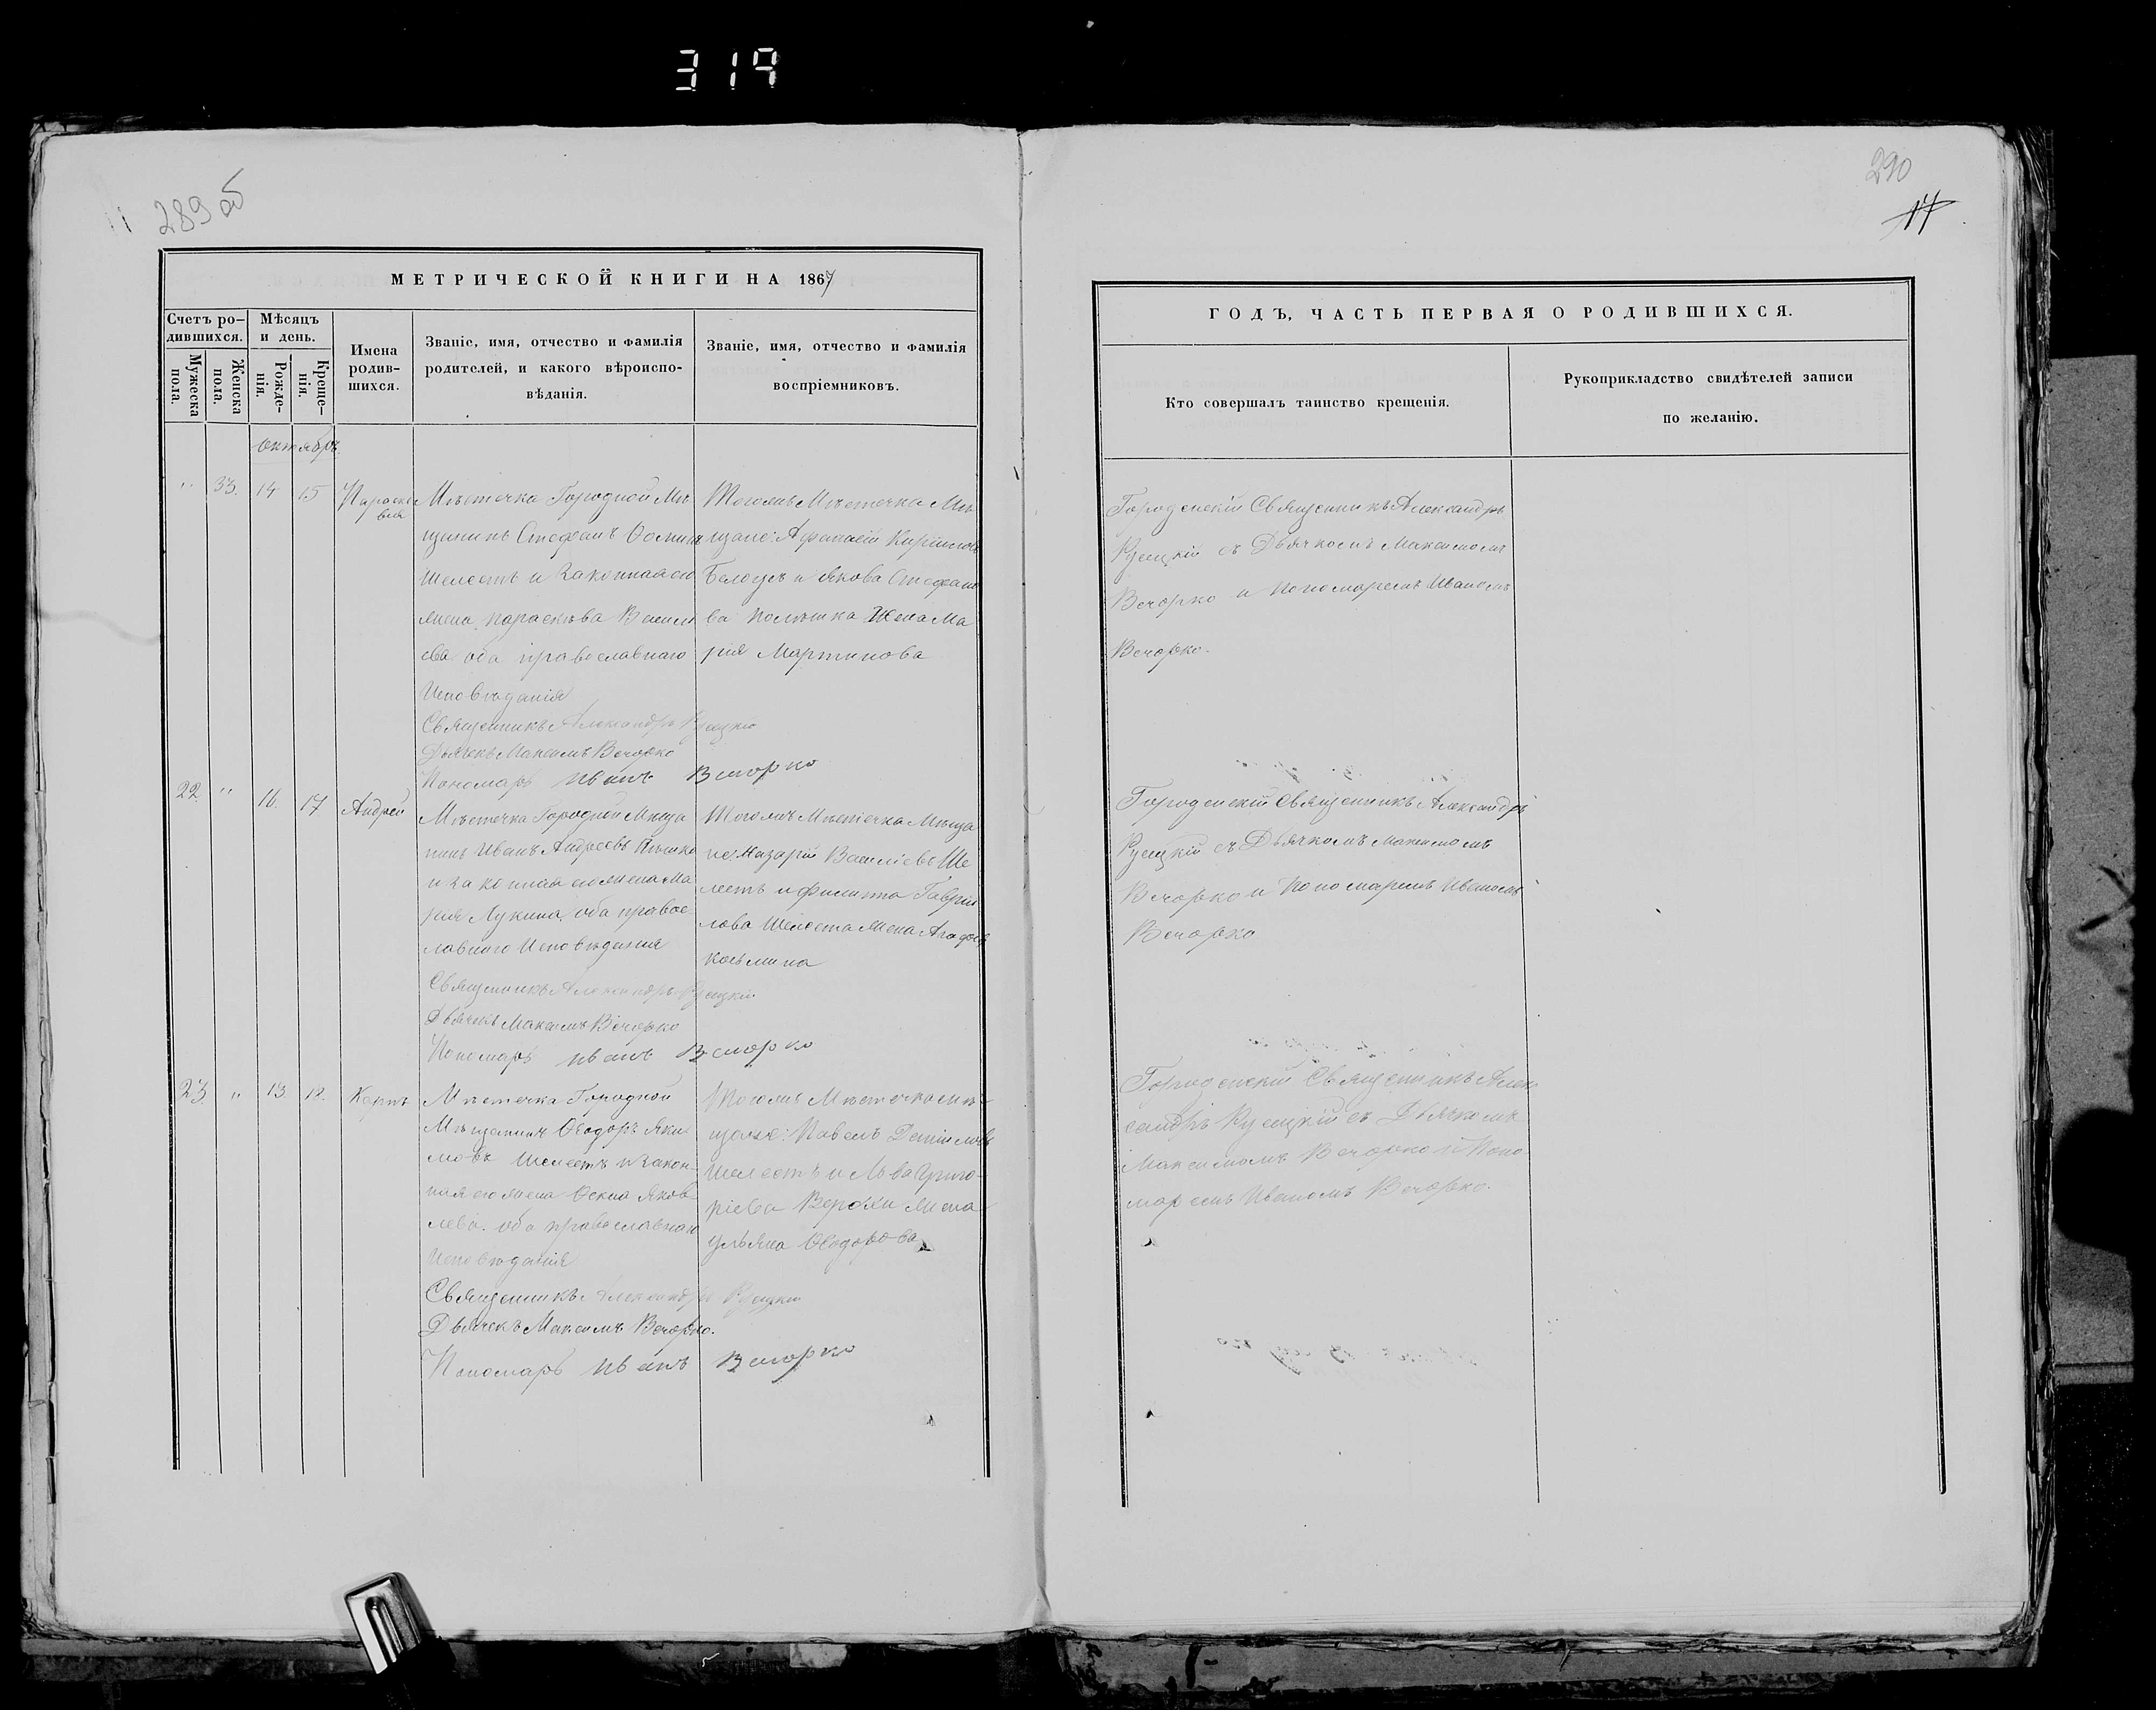 319
289 об
290
17
МЕТРИЧЕСКОЙ КНИГИ НА 1867
Счетъ ро-
дившихся.
Мужеска
пола.
Женска
пола.
Мѣсяцъ
и день.
Рожде-
нія.
Креще-
нія.
Имена
родив-
шихся.
Званіе, имя, отчество и фамилія
родителей, и какого вѣроиспо-
вѣданія.
Званіе, имя, отчество и фамилія
воспріемниковъ.
ГОДЪ, ЧАСТЬ ПЕРВАЯ О РОДИВШИХСЯ.
Кто совершалъ таинство крещенія.
Рукоприкладство свидѣтелей записи
по желанію.
Октябрь
" 33. 14 15
Параске
вія
Мѣстечка Городной Мѣ
щанинъ Стефанъ Ѳоминъ
Шелестъ и Законная его
жена Параскѣва Василі
ева оба православнаго
Исповѣданія
Священникъ Александръ Русецкій
Дьячекъ Максимъ Вечорко
Пономарь Иванъ Вечорко
Тогожъ Мѣстечка Мѣ
щане: Афанасій Кириловъ
и Якова Стефано
ва жена Ма
рія Мартинова
Городенскій Священникъ Александръ
Русецкій съ Дьячкомъ Максимомъ
Вечорко и Пономаремъ Иваномъ
Вечорко.
22. " 16. 17 Андрей
Мѣстечка Городной Мѣща
нинъ Иванъ Андреевъ
и Законная его жена Ма
рія Лукина, оба правос
лавнаго Исповѣданія
Священникъ Александръ Русецкій
Дьячекъ Максимъ Вечорко
Пономарь Иванъ Вечорко
Тогожъ Мѣстечка Мѣща
не: Назарій Василіевъ Ше
лестъ и Филипа Гаврии
лова Шелеста жена
Козьмина
Городенскій Священникъ Александръ
Русецкій съ Дьячкомъ Максимомъ
Вечорко и Пономаремъ Иваномъ
Вечорко
23. " 13. 18. Карпъ
Мѣстечка Городной
Мѣщанинъ Ѳеодоръ Яки
мовъ Шелестъ и Закон
ная его жена Яков
лева. оба православнаго
Исповѣданія
Священникъ Александръ Русецкій
Дьячекъ Максимъ Вечорко.
Пономарь Иванъ Вечорко
Тогожъ Мѣстечка Мѣ-
щане: Павелъ Даніиловъ
Шелестъ и Льва Григо-
ріева жена
Ульяна Ѳеодорова
Городенскій Священникъ Алек
сандръ Русецкій съ Дьячкомъ
Максимомъ Вечорко и Поно
маремъ Иваномъ Вечорко.